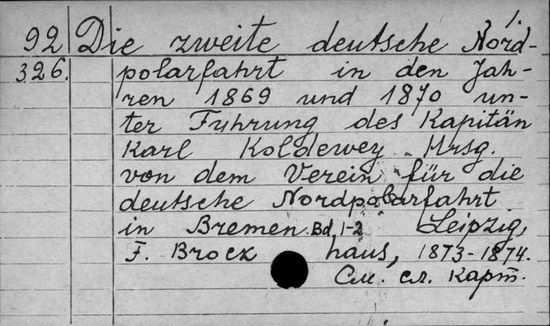 1.
92 Die zweite deutsche Nord-
326. polarfahrt in den Jah-
ren 1869 und 1870 un-
ter Führung des Kapitän
Karl Koldewey Hrsg.
von dem Verein für die
deutsche Nordpolarfahrt
in Bremen. Bd. 1-2 Leipzig,
F. Brockhaus, 1873-1874.
См. сл. карт.